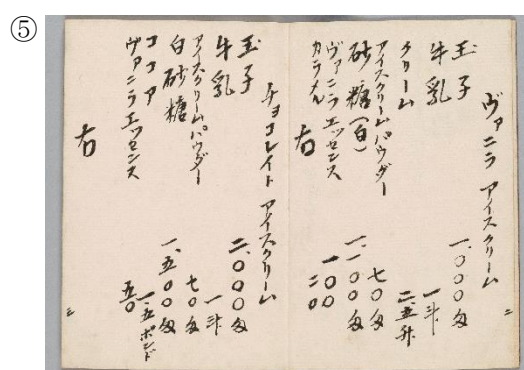 ⑤
ヴァニラ アイスクリーム
玉子 一、〇〇〇匁
牛乳 一斗
クリーム 二.五升
アイスクリームパウダー 七〇匁
砂糖(白) 一、一〇〇匁
ヴァニラエッセンス 一〇〇
カラメル 二〇
右
二
チョコレイトアイスクリーム
玉子 二、〇〇〇匁
牛乳 一斗
アイスクリームパウダー 七〇匁
白砂糖 一、五〇〇匁
ココア 一.五ポンド
ヴァニラエッセンス 五〇
右
三